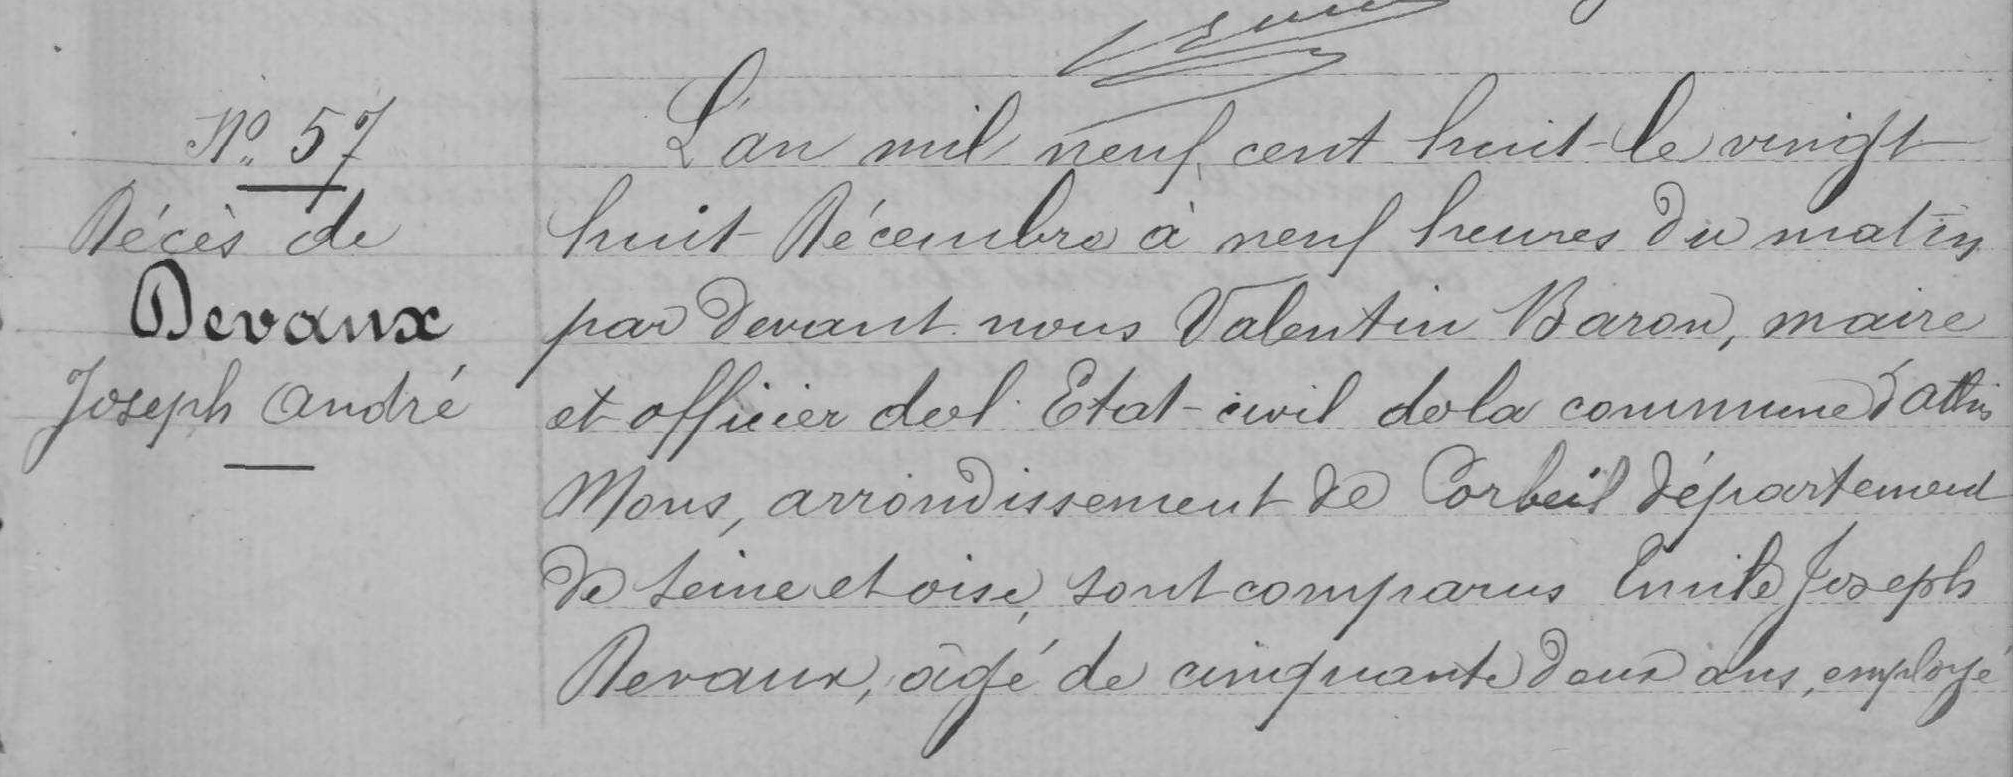 N° 57
Décès de
Devaux
Joseph André
L'an mil neuf cent huit le vingt
huit Décembre à neuf heures du matin
par devant nous Valentin Baron, maire
et officier de l'Etat-civil de la commune d'Athis
Mons, arrondissement de Corbeil département
de Seine et oise, sont comparus Emile Joseph
Devaux, âgé de cinquante deux ans, employé